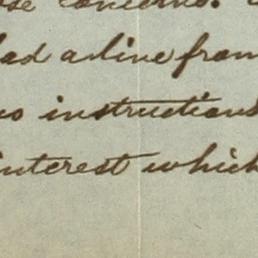 concerns.
had a line from
instructions
interest which